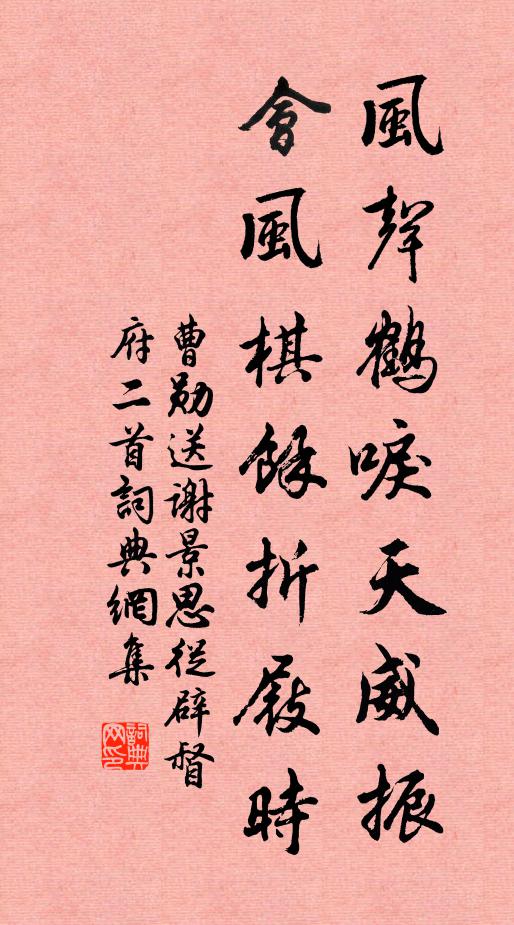 風聲鶴唳天威振
會風棋餘折屐時
曹勛送謝景思從辟督
府二首詞典網集
詞典网印